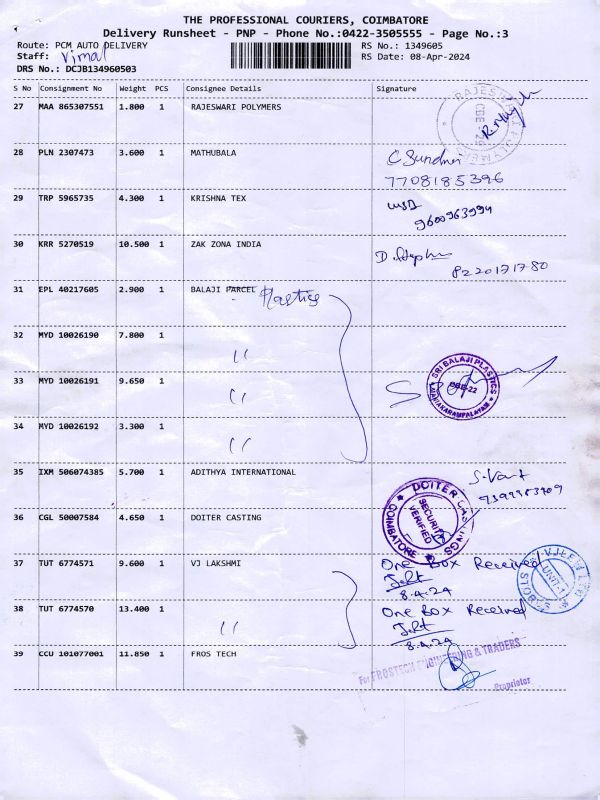 THE PROFESSIONAL COURIERS, COIMBATORE
Delivery Runsheet - PNP - Phone No.:0422-3505555 - Page No.:3
Route: PCM AUTO DELIVERY RS No.: 1349605
Staff: Vimal RS Date: 08-Apr-2024
DRS No.: DCJB134960503
S No Consignment No Weight PCS Consignee Details Signature
27 MAA 865307551 1.800 1 RAJESWARI POLYMERS
28 PLN 2307473 3.600 1 MATHUBALA
7708185396
29 TRP 5965735 4.300 1 KRISHNA TEX
9600963994
30 KRR 5270519 10.500 1 ZAK ZONA INDIA
8220171780
31 EPL 40217605 2.900 1 BALAJI PARCEL Plastics
32 MYD 10026190 7.800 1 "
33 MYD 10026191 9.650 1 "
SRI BALAJI PLASTICS
34 MYD 10026192 3.300 1 "
35 IXM 506074385 5.700 1 ADITHYA INTERNATIONAL
36 CGL 50007584 4.650 1 DOITER CASTING
DOITER CASTINGS
SECURITY
VERIFIED
COIMBATORE
37 TUT 6774571 9.600 1 VJ LAKSHMI One Box Received
8.4.24
38 TUT 6774570 13.400 1 " One Box Received
8.4.24
39 CCU 101077001 11.850 1 FROS TECH
For FROSTECH ENGINEERING & TRADERS
Proprietor